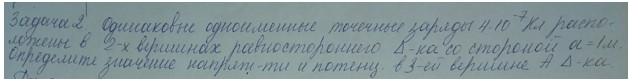 Задача 2. Одинаковые одноименные точечные заряды 4·10⁻⁷ Кл распо-
ложены в 2-х вершинах равностороннего Δ-ка со стороной a = 1м.
Определите значение напряж-ти и потенц. в 3-ей вершине А Δ-ка.